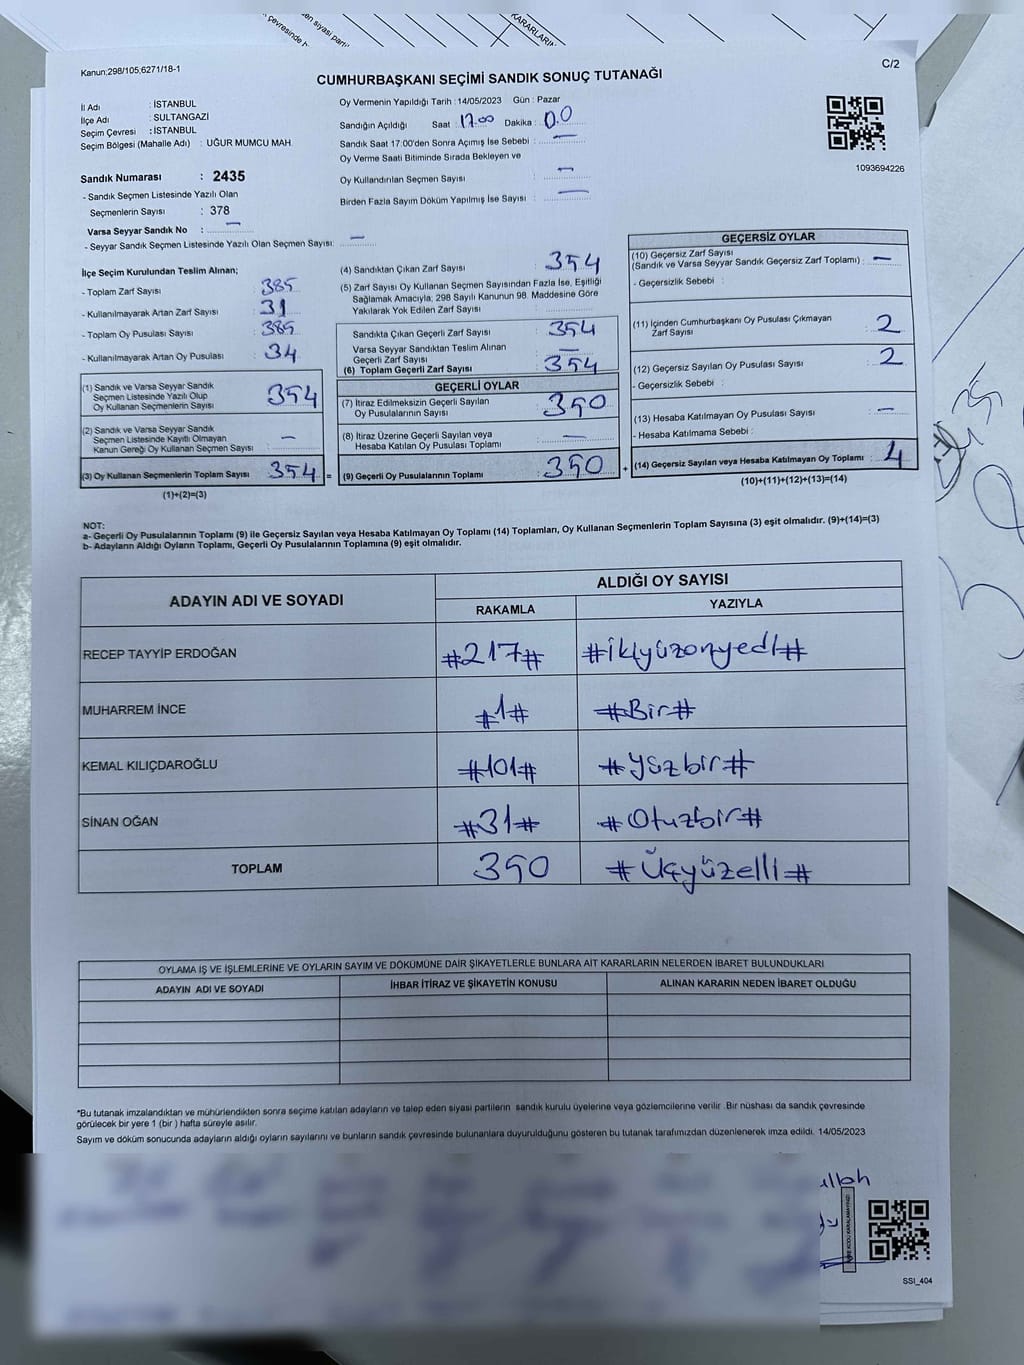 en siyasi parti
çevresinde b
KARARLARIN
Kanun;298/105;6271/18-1
C/2
CUMHURBAŞKANI SEÇİMİ SANDIK SONUÇ TUTANAĞI
İl Adı : İSTANBUL
İlçe Adı : SULTANGAZİ
Seçim Çevresi : İSTANBUL
Seçim Bölgesi (Mahalle Adı) : UĞUR MUMCU MAH.
Oy Vermenin Yapıldığı Tarih :14/05/2023 Gün : Pazar
Sandığın Açıldığı Saat :17.00 Dakika : 00
Sandık Saat 17:00'den Sonra Açımış İse Sebebi : —
Oy Verme Saati Bitiminde Sırada Bekleyen ve
Oy Kullandırılan Seçmen Sayısı : —
Birden Fazla Sayım Döküm Yapılmış İse Sayısı : —
1093694226
Sandık Numarası : 2435
- Sandık Seçmen Listesinde Yazılı Olan
Seçmenlerin Sayısı : 378
Varsa Seyyar Sandık No : —
- Seyyar Sandık Seçmen Listesinde Yazılı Olan Seçmen Sayısı: —
İlçe Seçim Kurulundan Teslim Alınan;
- Toplam Zarf Sayısı : 385
- Kullanılmayarak Artan Zarf Sayısı : 31
- Toplam Oy Pusulası Sayısı : 385
- Kullanılmayarak Artan Oy Pusulası : 34
(1) Sandık ve Varsa Seyyar Sandık
Seçmen Listesinde Yazılı Olup
Oy Kullanan Seçmenlerin Sayısı : 354
(2) Sandık ve Varsa Seyyar Sandık
Seçmen Listesinde Kayıtlı Olmayan
Kanun Gereği Oy Kullanan Seçmen Sayısı : —
(3) Oy Kullanan Seçmenlerin Toplam Sayısı : 354 =
(1)+(2)=(3)
(4) Sandıktan Çıkan Zarf Sayısı : 354
(5) Zarf Sayısı Oy Kullanan Seçmen Sayısından Fazla İse, Eşitliği
Sağlamak Amacıyla; 298 Sayılı Kanunun 98. Maddesine Göre
Yakılarak Yok Edilen Zarf Sayısı :
Sandıkta Çıkan Geçerli Zarf Sayısı : 354
Varsa Seyyar Sandıktan Teslim Alınan
Geçerli Zarf Sayısı : —
(6) Toplam Geçerli Zarf Sayısı : 354
GEÇERLİ OYLAR
(7) İtiraz Edilmeksizin Geçerli Sayılan
Oy Pusulalarının Sayısı : 350
(8) İtiraz Üzerine Geçerli Sayılan veya
Hesaba Katılan Oy Pusulası Toplamı : —
(9) Geçerli Oy Pusulalarının Toplamı : 350 +
GEÇERSİZ OYLAR
(10) Geçersiz Zarf Sayısı
(Sandık ve Varsa Seyyar Sandık Geçersiz Zarf Toplamı) : —
- Geçersizlik Sebebi :
(11) İçinden Cumhurbaşkanı Oy Pusulası Çıkmayan
Zarf Sayısı : 2
(12) Geçersiz Sayılan Oy Pusulası Sayısı : 2
- Geçersizlik Sebebi :
(13) Hesaba Katılmayan Oy Pusulası Sayısı : —
- Hesaba Katılmama Sebebi :
(14) Geçersiz Sayılan veya Hesaba Katılmayan Oy Toplamı : 4
(10)+(11)+(12)+(13)=(14)
NOT:
a- Geçerli Oy Pusulalarının Toplamı (9) ile Geçersiz Sayılan veya Hesaba Katılmayan Oy Toplamı (14) Toplamları, Oy Kullanan Seçmenlerin Toplam Sayısına (3) eşit olmalıdır. (9)+(14)=(3)
b- Adayların Aldığı Oyların Toplamı, Geçerli Oy Pusulalarının Toplamına (9) eşit olmalıdır.
ADAYIN ADI VE SOYADI ALDIĞI OY SAYISI
RAKAMLA YAZIYLA
RECEP TAYYİP ERDOĞAN #217# #ikiyüzonyedi#
MUHARREM İNCE #1# #Bir#
KEMAL KILIÇDAROĞLU #101# #Yüzbir#
SİNAN OĞAN #31# #Otuzbir#
TOPLAM 350 #Üçyüzelli#
OYLAMA İŞ VE İŞLEMLERİNE VE OYLARIN SAYIM VE DÖKÜMÜNE DAİR ŞİKAYETLERLE BUNLARA AİT KARARLARIN NELERDEN İBARET BULUNDUKLARI
ADAYIN ADI VE SOYADI İHBAR İTİRAZ VE ŞİKAYETİN KONUSU ALINAN KARARIN NEDEN İBARET OLDUĞU
*Bu tutanak imzalandıktan ve mühürlendikten sonra seçime katılan adayların ve talep eden siyasi partilerin sandık kurulu üyelerine veya gözlemcilerine verilir. Bir nüshası da sandık çevresinde
görülecek bir yere 1 (bir ) hafta süreyle asılır.
Sayım ve döküm sonucunda adayların aldığı oyların sayılarını ve bunların sandık çevresinde bulunanlara duyurulduğunu gösteren bu tutanak tarafımızdan düzenlenerek imza edildi. 14/05/2023
ullah
SSI_404